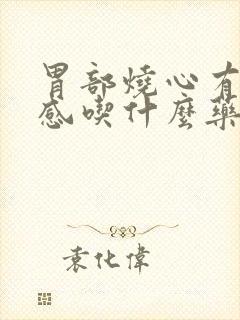 胃部燒心有
感喫什麼藥
袁化偉